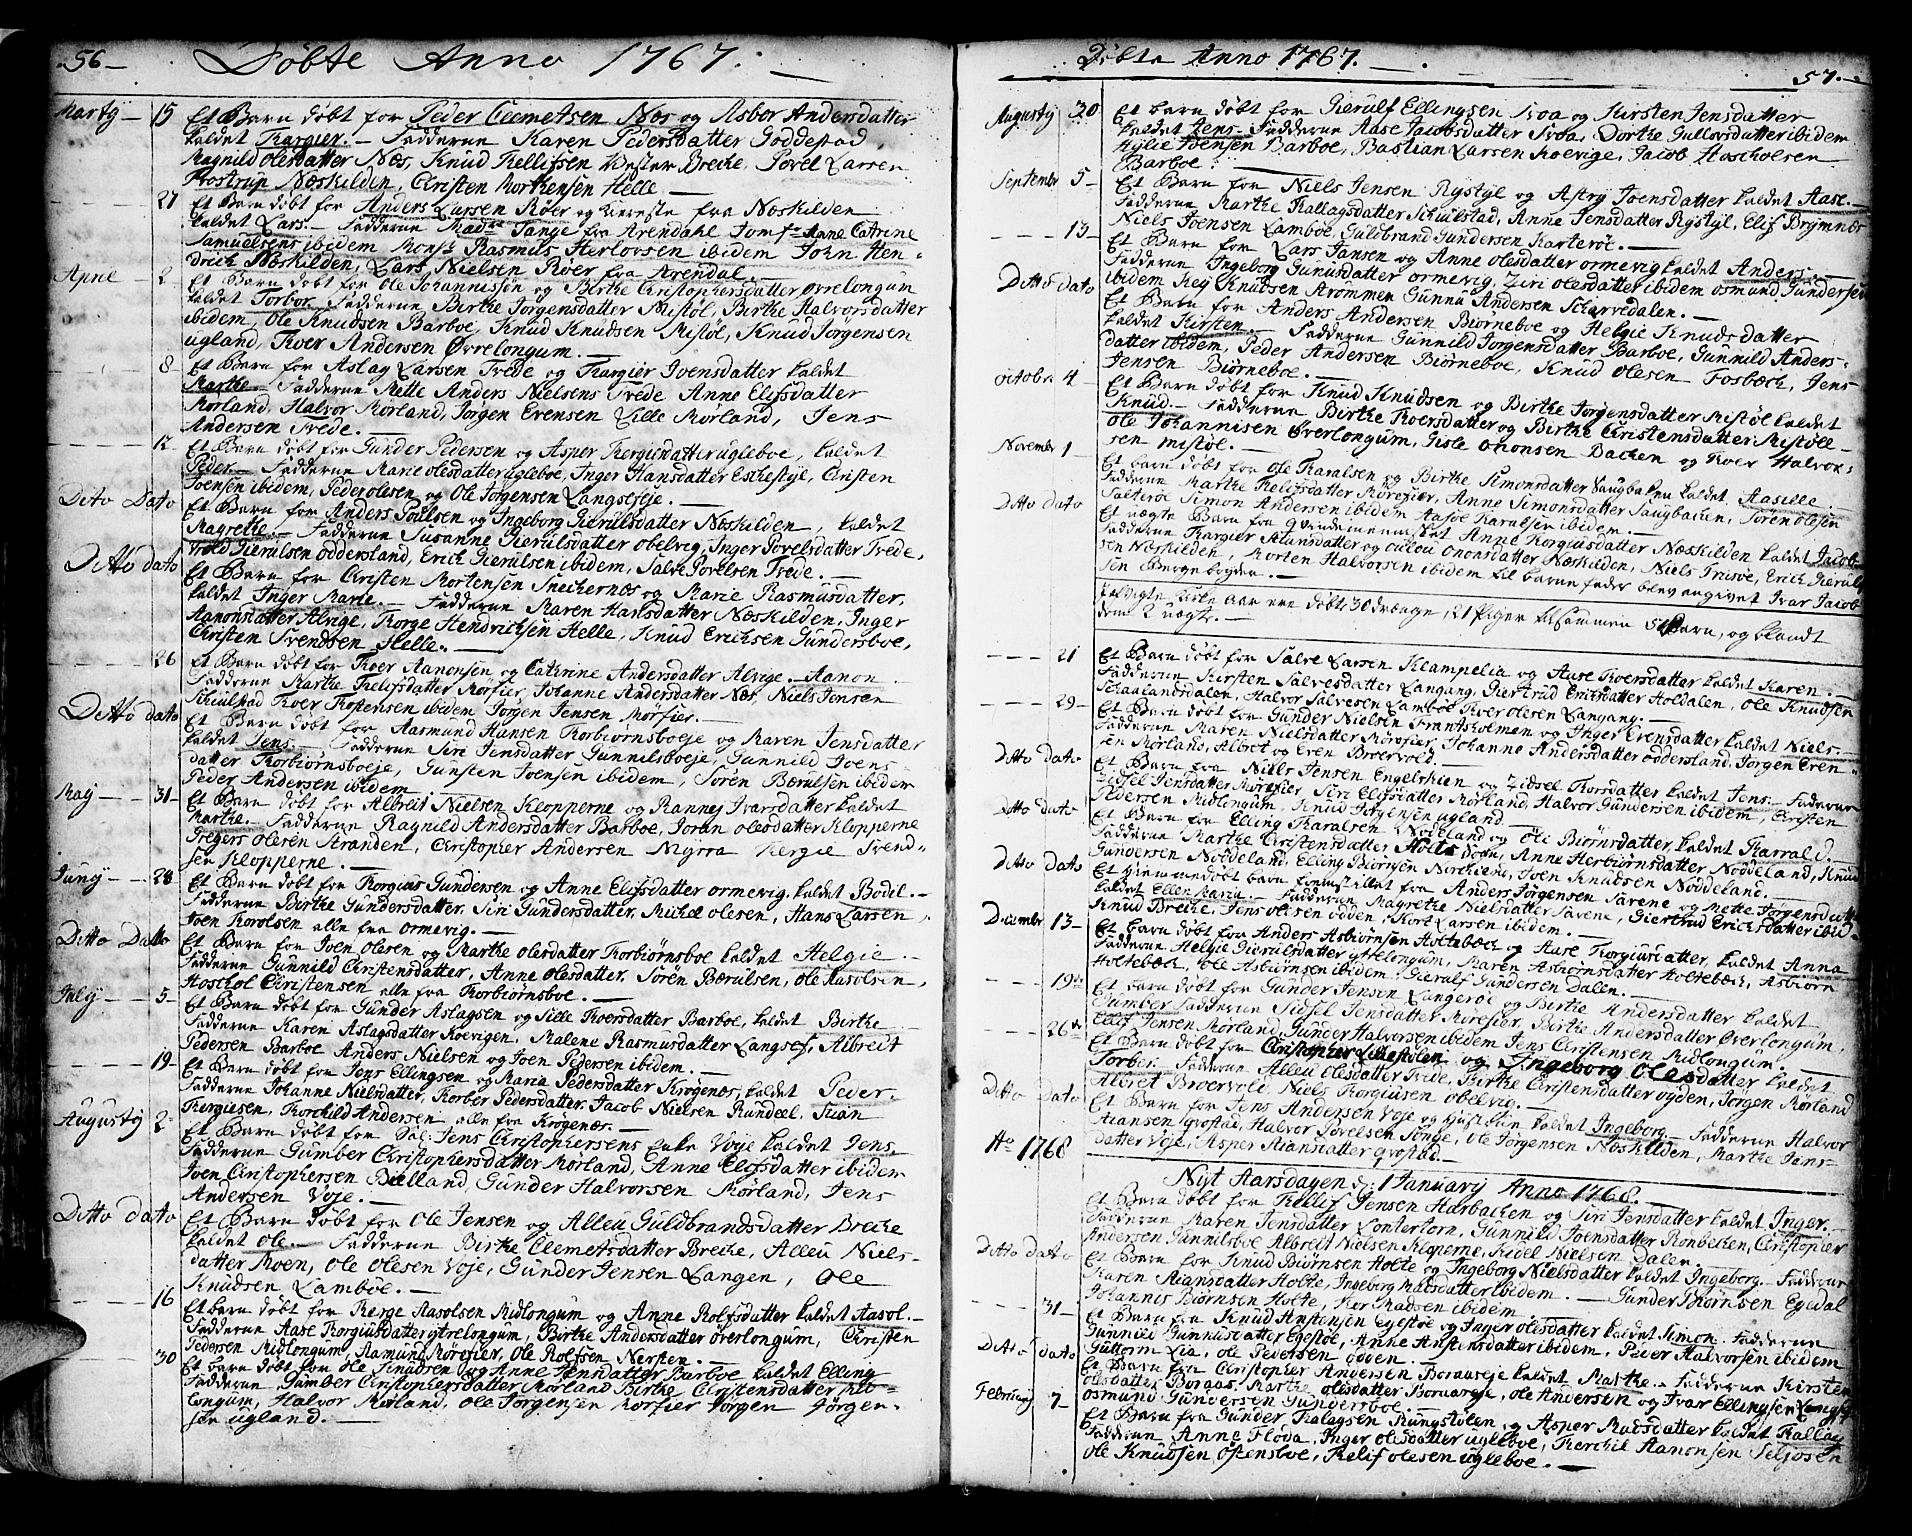 56
Döbte Anno 1767.
Marty 15 Et Barn döbt for Peder Clemetsen Næs og Asbor Andersdatter
kaldet Torgier. Fadderne Karen Pedersdatter Goddestad,
Magnild Olesdatter Næs, Knud Kellifsen Vester Breike, Povel Larsen
Prostrup Næskilden, Christen Mortensen Helle
27 Et Barn döbt for Anders Larsen Röer og Kiereste fra Næskilden
kaldet Lars. Fadderne Madme Tange fra Arendahl Jomfr Anne Catrine
Samuelsens ibidem Monsr Rasmus Herlovsen ibidem John Hen-
drich Næskilden, Lars Nielsen Röer fra Arendal
2 Et Barn döbt for Ole Johannissön og Birthe Christophersdatter Övrelongum
kaldet Torbor. Fadderne Birthe Jörgensdatter Mistöl, Birthe Halvorsdatter
ibidem, Ole Knudsen Barboe, Knud Knudsen Mistöl, Knud Jörgensen
ugland, Troer Andersen Övrelongum.
8 Et Barn for Aslag Larsen Trede og Torgier Joensdatter kaldet
Marthe. Fadderne Mette Anders Nielsens Trede Anne Elifsdatter
Mörland, Halvor Mörland, Jörgen Evensen Lille Mörland, Jens
Andersen Trede.
12 Et Barn döbt for Gunder Pedersen og Asper Tergiesdatter ugleboe, kaldet
Peder. Fadderne Marie Olesdatter ugleboe, Inger Hansdatter Eskestyl, Christen
Joensen ibidem, Peder olesen og Ole Jörgensen Langseseje.
Dito Dato Et Barn for Anders Poulsen og Ingeborg Gierulsdatter Næskilden, kaldet
Magrethe. Fadderne Susanne Gierulsdatter obelvig, Inger Povelsdatter Trede,
Wrold Gierulsen oddersland, Erich Gierulsen ibidem, Salve Povelsen Trede.
Ditto dato Et Barn for Christen Mortensen Snechernæs og Marie Rasmusdatter,
kaldet Inger Marie. Fadderne Maren Hansdatter Næskilden, Inger
Aanonsdatter Alvige, Torge Hendrichsen Helle, Knud Erichsen Gundersboe,
Christen Svendsen Helle.
26 Et Barn döbt for Troer Aanonsen og Cathrine Andersdatter Alvige. Aanon
Fadderne Marthe Thelifsdatter Mörfier, Johanne Andersdatter Næs, Niels Jensen
Skiulstad Troer Tostensen ibidem Jörgen Jensen Mörfier.
Ditto dato Et Barn döbt for Aasmund Hansen Torbiornsboeje og Maren Jensdatter
kaldet Jens. Fadderne Siri Jensdatter Gunnilsboeje, Gunnild Joens-
datter Torbiornsboeje, Gunsten Joensen ibidem, Sören Bærulsen ibidem
Peder Andersen ibidem
May 31 Et Barn döbt for Albreit Nielsen Klopperne og Rannej Ivarsdatter kaldet
Marthe. Fadderne Ragnild Andersdatter Barboe, Joran Olesdatter Klopperne
Gregers Olesen Stranden, Christopher Andersen Myrra Tergie Svend-
sen Klopperne.
Juny 28 Et Barn döbt for Torgius Gundersen og Anne Elifsdatter ormevig, kaldet Bodil.
Fadderne Birthe Gundersdatter, Siri Gundersdatter, Michel olesen, Hans Larsen
Joen Torolsen alle fra ormevig.
Ditto Datto Et Barn for Joen Olsen og Marthe olesdatter Torbiörnsboe kaldet Helgie.
Fadderne Gunnild Christensdatter, Anne olesdatter, Sören Bærulsen, ole Aasolsen
Hoschol Christensen alle fra Torbiörnsboe.
July 5 Et Barn döbt for Gunder Aslagsen og Sille Troersdatter Barboe, kaldet Birthe
Fadderne Karen Aslagsdatter Koevigen, Malene Rasmusdatter Langses, Albreit
Pedersen Barboe Anders Nielsen og Joen Pedersen ibidem.
19 Et Barn döbt for Jens Ellingsen og Maria Pedersdatter Krogenæs, kaldet Peder.
Fadderne Johanne Nielsdatter, Torber Pedersdatter, Jacob Nielsen Rundeel, Tuan
Tergiesen, Torchild Andersen alle fra Krogenæs.
Augusty 2 Et Barn döbt for Sal. Jens Christophersens Enke Voje kaldet Jens,
Fadderne Gumber Christophersdatter Mörland, Anne Elofsdatter ibidem
Joen Christophersen Bieland, Gunder Halvorsen Mörland, Jens
Andersen Voje.
Ditto dato Et Barn döbt for Ole Jensen og Alleu Guldbrandsdatter Breike
kaldet Ole. Fadderne Birthe Clemetsdatter Breike, Alleu Niels-
datter Moen, Ole Olesen Voje, Gunder Jensen Langen, Ole
Knudsen Lamböe.
16 Et barn döbt for Terge Aasolsen Midlongum og Anne Rolfsdatter kaldet Aasol.
Fadderne Aase Torgiusdatter ytrelongum, Birthe Andersdatter Överlongum, Christen
Pedersen Midlongum, Aamund Mörefier, Ole Rolfsen Nersten.
30 Et barn döbt for ole Knudsen og Anne Jensdatter Barboe kaldet Elling
Fadderne Gumber Christophersdatter Mörland Birthe Christensdatter Mid-
longum, Halvor Mörland, Ole Jörgensen Morfier Jörgen Jörgen-
sen ugland.
Döbte Anno 1767.
57.
Augusty 30 Et barn döbt for Gierulf Ellingsen Kroa og Kirsten Jensdatter
kaldet Jens. Fadderne Aase Jacobsdatter Kroa, Dorthe Gullovsdatter ibidem
Kylie Joensen Barboe, Bastian Larsen Koevige, Jacob Hoscholsen
Barboe.
Septembr 5 Et Barn for Niels Jensen Rystyl og Astry Joensdatter kaldet Aase.
Fadderne Marthe Tallagsdatter Schiulstad, Anne Jensdatter Rystyl, Elif Brymnes
Niels Joensen Lamboe, Guldbrand Gundersen Karteröe.
13 Et Barn for Lars Jansen og Anne olesdatter ormevig kaldet Anders.
Fadderne Ingeborg Gunusdatter ormevig, Ziri olesdatter ibidem osmund Gundersen
ibidem Kej Knudsen Strömmen Gunnu Andersen Skarvedalen.
Ditto dato Et Barn for Anders Andersen Biörneboe og Helgie Knudsdatter
kaldet Kirsten. Fadderne Gunnild Jörgensdatter Barboe, Gunnild Anders-
datter ibidem, Peder Andersen Biörneboe, Knud Olesen Fosbæch, Jens
Jensen Biörneboe.
Octobris 4 Et Barn döbt for Knud Knudsen og Birthe Jörgensdatter Mistöl kaldet
Knud. Fadderne Birthe Troersdatter og Birthe Christensdatter Mistöl
Ole Johannisen Överlongum, Gisle ononsen Bachen og Troer Halvor-
sen mistöl.
Novembr 1 Et barn döbt for Ole Taralsen og Birthe Simonsdatter Saugbaken kaldet Aasille
Fadderne Marthe Thelifsdatter Mörefier, Anne Simonsdatter Saugbachen, Sören olesen
Salteröe Simon Andersen ibidem Aasoe Taralsen ibidem.
Ditto dato Et uægte Barn fra qvindemennisket Anne Torgiusdatter Næskilden kaldet Jacob
Fadderne Torgier Aslunsdatter og Oulou Ononsdatter Næskilden, Niels Trisöe, Erich Gierul-
sen Næskilden, Morten Halvorsen ibidem til barne fader blev angivet Ivar Jacob
sen Bergebögden.
Kirke Aar ere döbt 30 drænge, 21 Piger tilsammen 51 Barn, og blandt
dem 2 uægte.
21 Et Barn döbt for Salve Larsen Klampelia og Aase Troersdatter kaldet Karen.
Fadderne Kirsten Salvesdatter Langang, Giertrud Erichsdatter Holdalen, Ole Knudsen
Skaalandsdalen, Halvor Salvesen Lamboe Troer Olesen Langang.
29 Et Barn döbt for Gunder Nielsen Frantsholmen og Inger Evensdatter kaldet Niels.
Fadderne Maren Nielsdatter Mörefier, Johanne Andersdatter oddersland, Jörgen Even-
sen Mörland, Albret og Even Broervold.
Ditto dato Et Barn fra Niels Jensen Engelskien og Zidsel Thorsdatter kaldet Jens. Fadderne
Zidsel Jensdatter Mörefier, Siri Elifsdatter Mörland, Halvor Gundersen ibidem, Christen
Pedersen Midlongum, Knud Jörgensen ugland.
Ditto dato Et Barn for Elling Taralsen Nödeland og Öli Biörnsdatter, kaldet Tarrald.
Fadderne Marthe Christensdatter Holte Voon, Anne Herbiörnsdatter Nöddeland, Knud
Gundersen Nöddeland, Elling Biörnsen Norchiem, Joen Knudsen Nöddeland.
Ditto dato Et hiemmedöbt barn fremstillet fra Anders Jörgensen Sævene og Mette Jörgensdatter
kaldet Ellen Maria. Fadderne Magrethe Nielsdatter Sævene, Giertrud Erichsdatter ibid.
Knud Breike, Jens olesen odden, Tore Larsen ibidem.
Decembr 13 Et barn döbt for Anders Asbiörnsen Holtebæch og Aase Torgiusdatter, kaldet Anna
Fadderne Helgie Gierulsdatter yttelongum, Maren Asbiornsdatter Holtebæch, Asbiörn
Holtebæch, Ole Asbiörnsen ibidem, Gieralf Gundersen Dalen.
19de Et barn döbt for Gunder Jensen Langeröe og Birthe Andersdatter kaldet
Gumber Fadderne Sidsel Jensdatter Mörefier, Birthe Andersdatter Överlongum,
Ellif Jensen Mörland, Gunder Halvorsen ibidem Jens Christensen Midlongum.
26de Et Barn döbt for Christopher Lillestölen og Ingeborg Olesdatter kaldet
Torber. Fadderne Alleu Olesdatter Trede, Birthe Christensdatter ogden, Jörgen Mörland
Albret Broervold, Niels Torgiusen obelvig.
Ditto dato Et Barn döbt for Jens Andersen Voje og Hustrue kaldet Ingeborg. Fadderne Halvor
Stiansen Qvostad, Halvor Povelsen Songe, Ole Jörgensen Næskilden, Marthe Jans-
datter Voje, Asper Stiansdatter Qvostad.
Ao 1768 Nyt Aarsdagen d: 1 January Anno 1768.
Et Barn döbt for Thellif Jensen Harbachen og Siri Jensdatter kaldet Inger.
Fadderne Maren Jensdatter Longertorn, Gunnild Joensdatter Ronbeken, Christopher
Andersen Gunnilsboe Albreit Nielsen Kloperne, Kidel Nielsen Dalen
Ditto dato Et Barn for Knud Biörnsen Holte og Ingeborg Nielsdatter kaldet Ingeborg. Fadderne
Karen Stiansdatter Holte, Ingeborg Madsdatter ibidem. Gunder Biörnsen Egedal
Johannis Biörnsen Holte, Tor Madsen ibidem
31 Et Barn for Knud Anstensen Egestöe og Inger olesdatter kaldet Simon. Fadderne
Gunnild Gunnusdatter Egestöe, Anne Anstensdatter ibidem, Peder Halvorsen ibidem
Guttorm Lia, ole Pedersen odden.
Ditto dato Et Barn for Christopher Andersen Boraaseje kaldet Marthe. Fadderne Kirsten
olesdatter Boraas, Marthe olesdatter Boraaseje, ole Andersen og Ivar Ellingsen Langsej
osmund Gundersen Gundersboe.
February 7 Et Barn fra Gunder Tallagsen Rungstölen og Asper Madsdatter kaldet Tallag
Fadderne Anne Floda, Inger olesdatter ugleboe, Terchil Aanonsen Seljosen
Ole Knudsen ostensboe, Thelif olesen ugleboe.